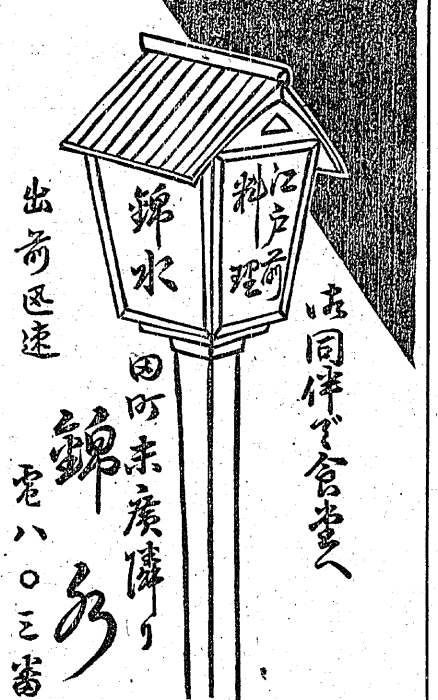 江戸前
料理
錦水
御同伴で食堂へ
田町末廣隣り
錦水
出前迅速
電八〇三番